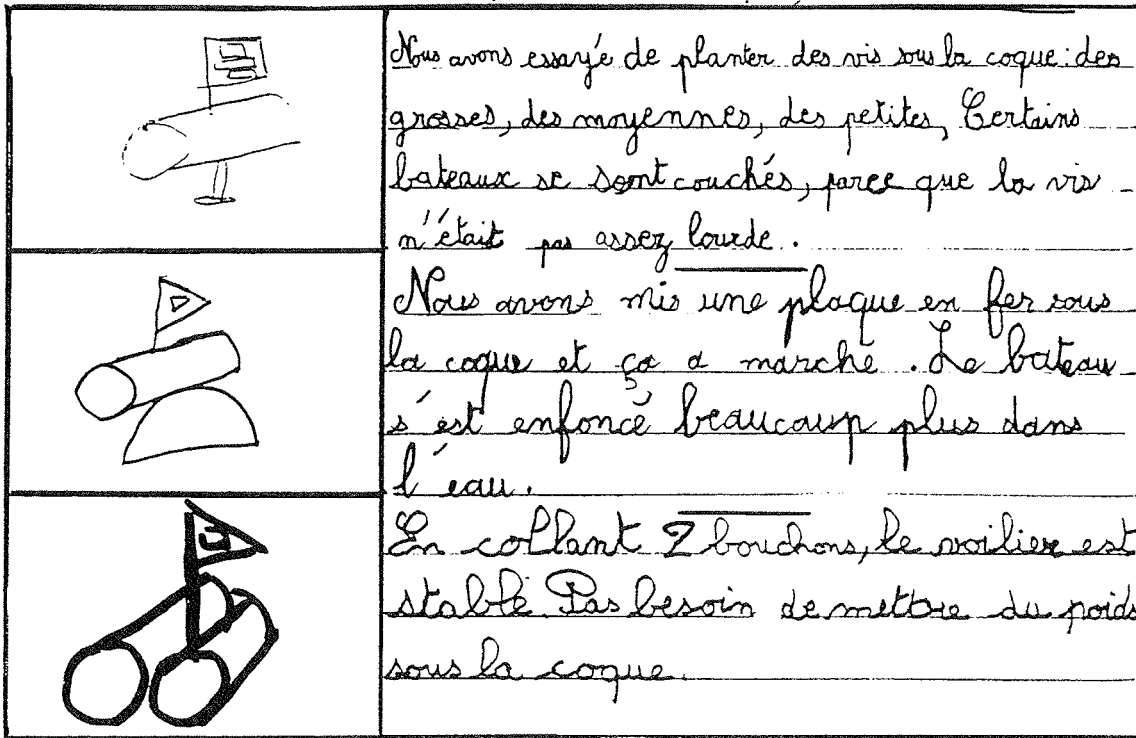 Nous avons essayé de planter des vis sous la coque : des
grosses, des moyennes, des petites, Certains
bateaux se sont couchés, parce que la vis
n'était pas assez lourde.
Nous avons mis une plaque en fer sous
la coque et ça a marché. Le bateau
s'est enfoncé beaucoup plus dans
l'eau.
En collant 2 bouchons, le voilier est
stable. Pas besoin de mettre du poids
sous la coque.